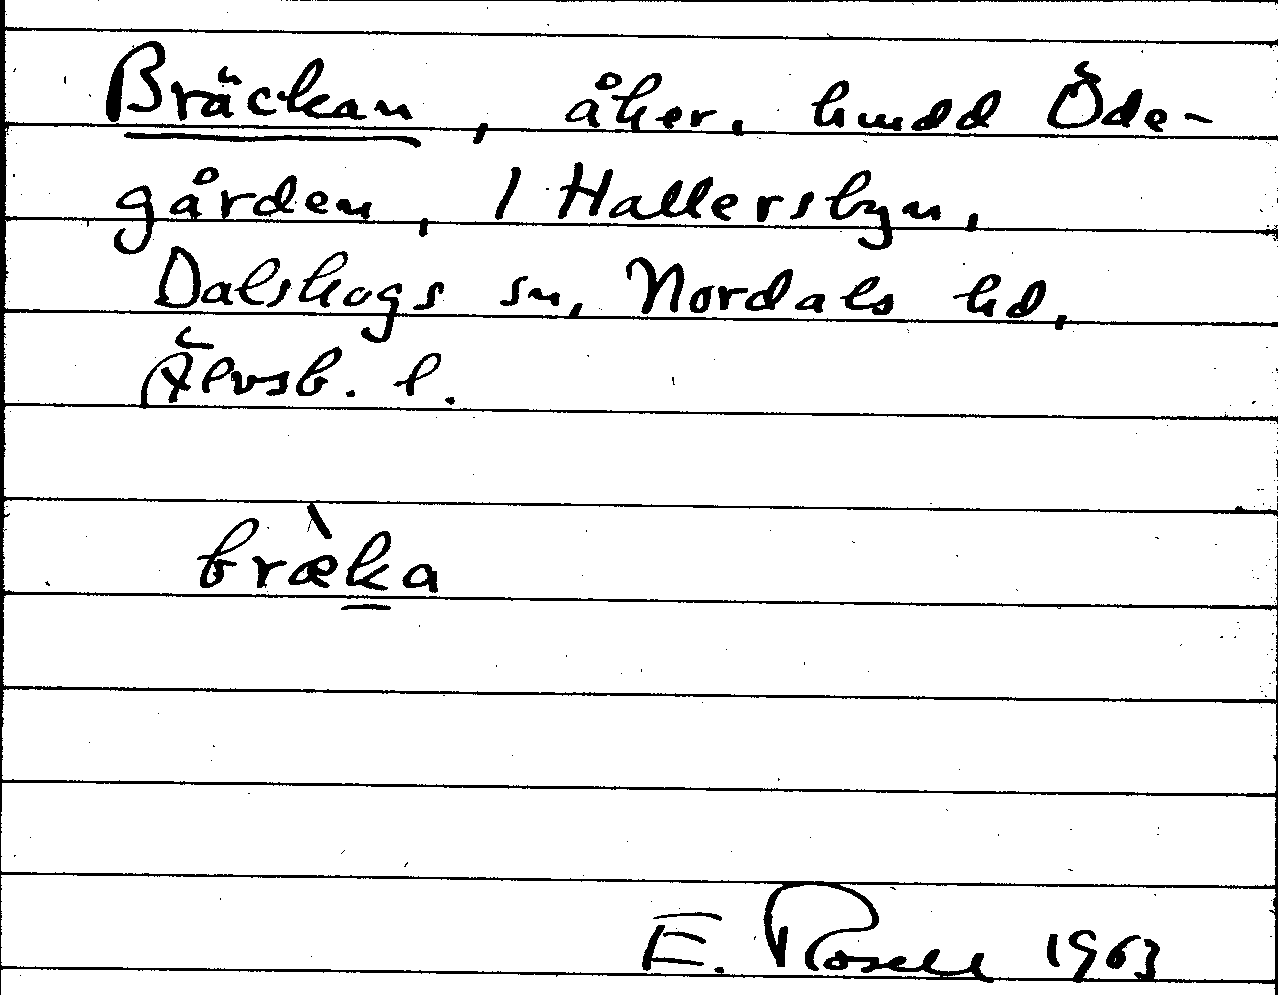 Bräckan, åker. hmdd Öde-
gården, 1 Hallersbyn,
Dalskogs sn, Nordals hd,
Älvsb. l.
bræ̀ka
E. Rosell 1963